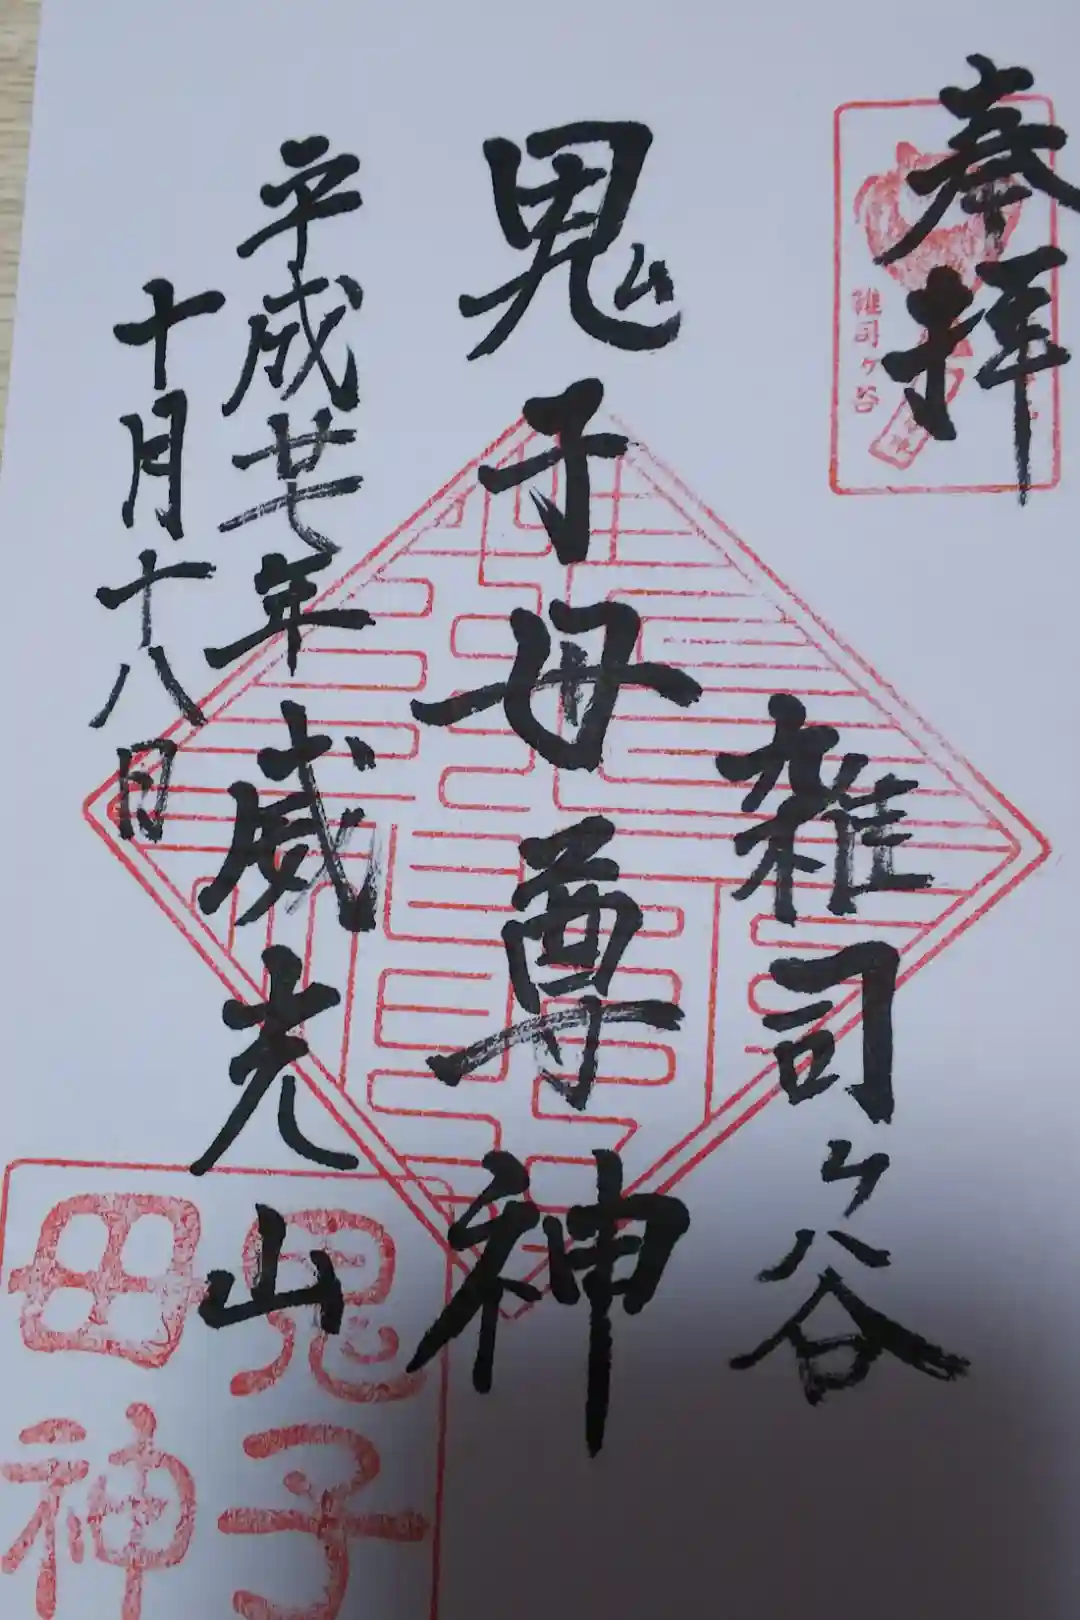 奉拝
雑司ヶ谷
雑司ヶ谷
鬼子母尊神
平成廿七年
威光山
十月十八日
鬼子
母神